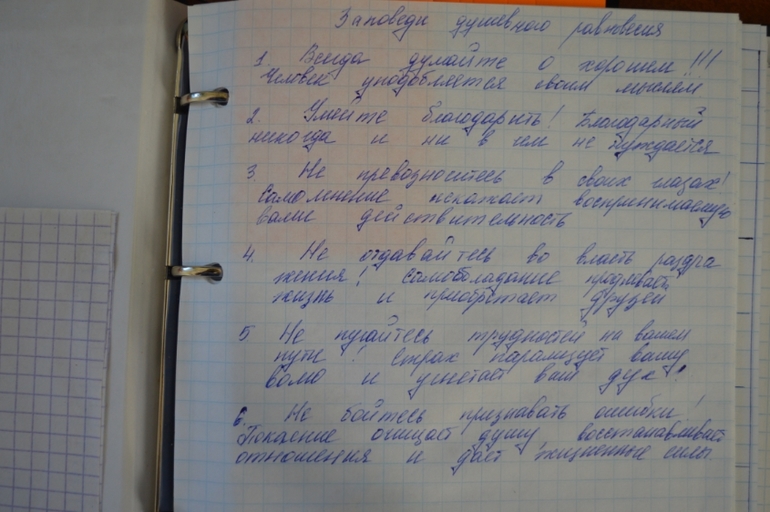 Заповеди душевного равновесия
1. Всегда думайте о хорошем!!!
Человек уподобляется своим мыслям
2. Умейте благодарить! Благодарный
никогда и ни в чем не нуждается
3. Не превозноситесь в своих глазах!
Самомнение искажает воспринимаемую
вами действительность
4. Не отдавайтесь во власть раздра
жения! Самообладание продлевает
жизнь и приобретает друзей
5 Не пугайтесь трудностей на вашем
пути! Страх парализует вашу
волю и угнетает ваш дух!
6. Не бойтесь признавать ошибки!
Покаяние очищает душу восстанавливает
отношения и даёт жизненные силы.